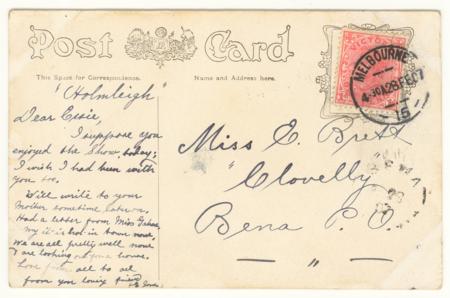 Post Card
This Space for Correspondence.
Name and Address here.
VICTORIA
MELBOURNE
4·30A 28 FE 07
15
"Holmleigh"
Dear Essie,
I suppose you
enjoyed the Show today;
I wish I had been with
you too.
Will write to your
Mother sometime
Had a letter from Miss
my it is hot in town now.
We are all pretty well now
& are looking house.
Love from all to all
from you loving friend
Miss E. Brett
"Clovelly
Bena P.O.
— " —